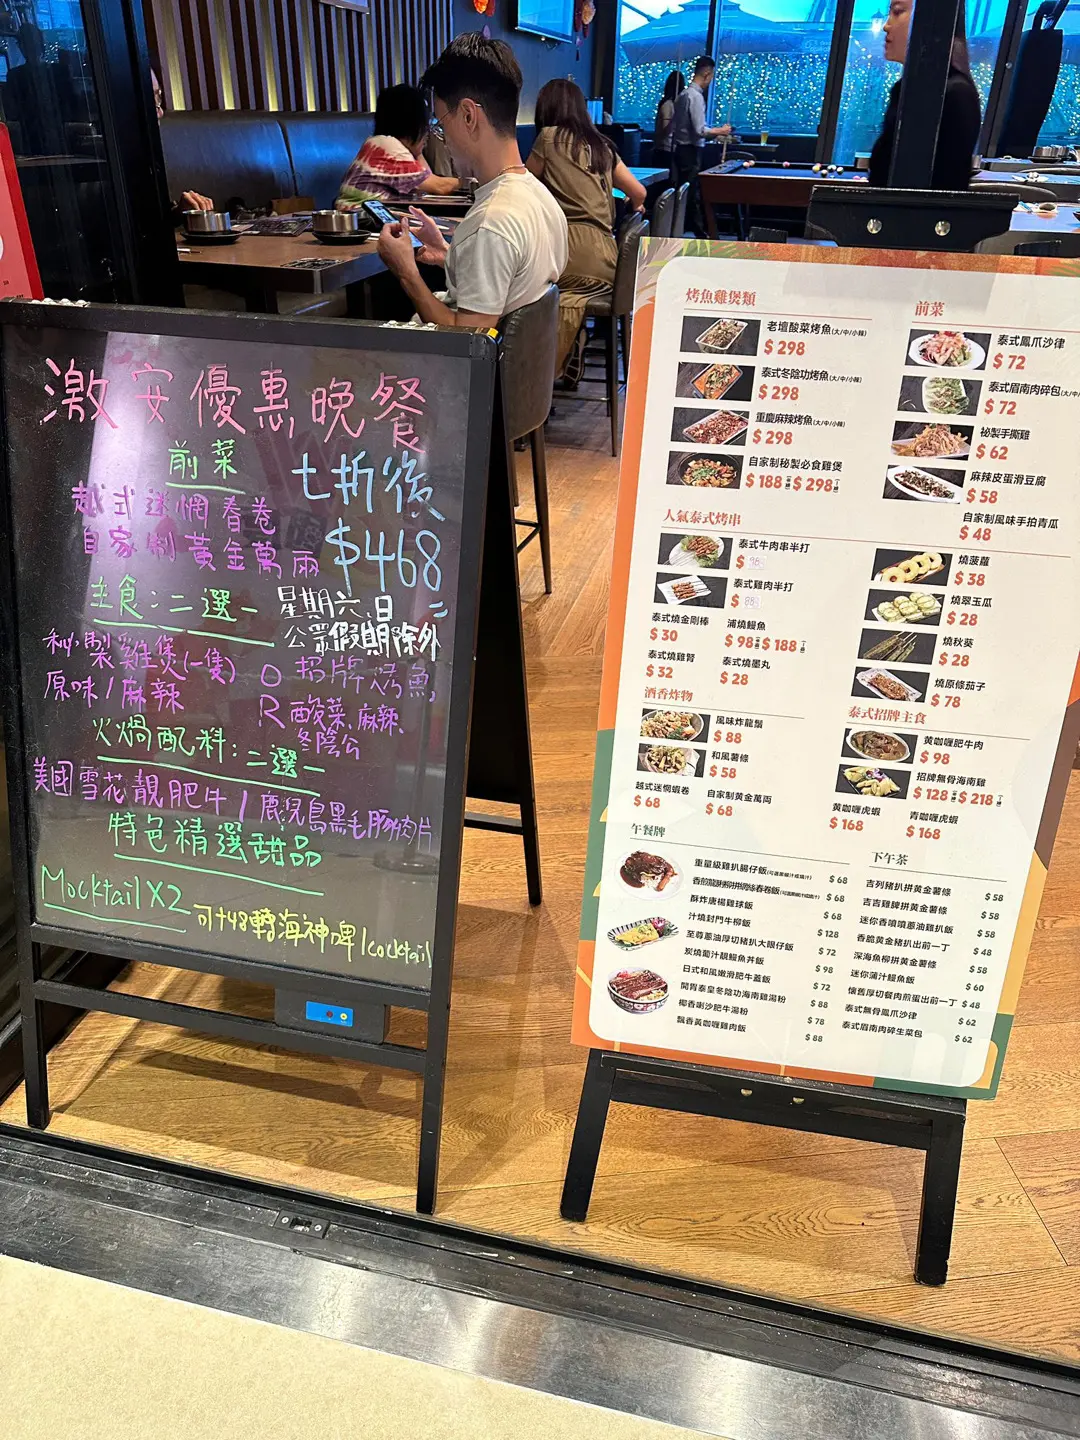 激安優惠晚餐
前菜
七折後
越式迷惘春卷
$468
自家制黃金萬兩
主食:二選一
星期六、日
公眾假期除外
秘製雞煲(一隻)
O 招牌烤魚
原味/麻辣
R 酸菜、麻辣、
冬陰公
火焗配料:二選一
美國雪花靚肥牛/鹿兒島黑毛豚肉片
特色精選甜品
Mocktail X2
可+48轉海神啤/cocktail
烤魚雞煲類
老壇酸菜烤魚(大/中/小辣)
$ 298
泰式冬陰功烤魚(大/中/小辣)
$ 298
重慶麻辣烤魚(大/中/小辣)
$ 298
自家制秘製必食雞煲
$ 188 $ 298
前菜
泰式鳳爪沙律
$ 72
泰式眉南肉碎包(大/中/
$ 72
祕製手撕雞
$ 62
麻辣皮蛋滑豆腐
$ 58
自家制風味手拍青瓜
$ 48
人氣泰式烤串
泰式牛肉串半打
$ 98
泰式雞肉半打
$ 88
泰式燒金剛棒
$ 30
浦燒鰻魚
$ 98 $ 188
泰式燒雞腎
$ 32
泰式燒墨丸
$ 28
燒菠蘿
$ 38
燒翠玉瓜
$ 28
燒秋葵
$ 28
燒原條茄子
$ 78
酒香炸物
風味炸龍鬚
$ 88
和風薯條
$ 58
越式迷惘蝦卷
$ 68
自家制黃金萬両
$ 68
泰式招牌主食
黃咖喱肥牛肉
$ 98
招牌無骨海南雞
$ 128 $ 218
黄咖喱虎蝦
$ 168
青咖喱虎蝦
$ 168
午餐牌
重量級雞扒腸仔飯 $ 68
$ 68
酥炸唐楊雞球飯 $ 68
汁燒封門牛柳飯 $ 128
至尊蔥油厚切豬扒大眼仔飯 $ 72
炭燒葡汁靚鰻魚丼飯 $ 98
日式和風嫩滑肥牛蓋飯 $ 72
開胃泰皇冬陰功海南雞湯粉 $ 88
椰香喇沙肥牛湯粉 $ 78
飄香黃咖喱雞肉飯 $ 88
下午茶
吉列豬扒拼黃金薯條 $ 58
吉吉雞髀拼黃金薯條 $ 58
迷你香噴噴蔥油雞扒飯 $ 58
香脆黃金豬扒出前一丁 $ 48
深海魚柳拼黃金薯條 $ 58
迷你蒲汁鰻魚飯 $ 60
懷舊厚切餐肉煎蛋出前一丁 $ 48
泰式無骨鳳爪沙律 $ 62
泰式眉南肉碎生菜包 $ 62